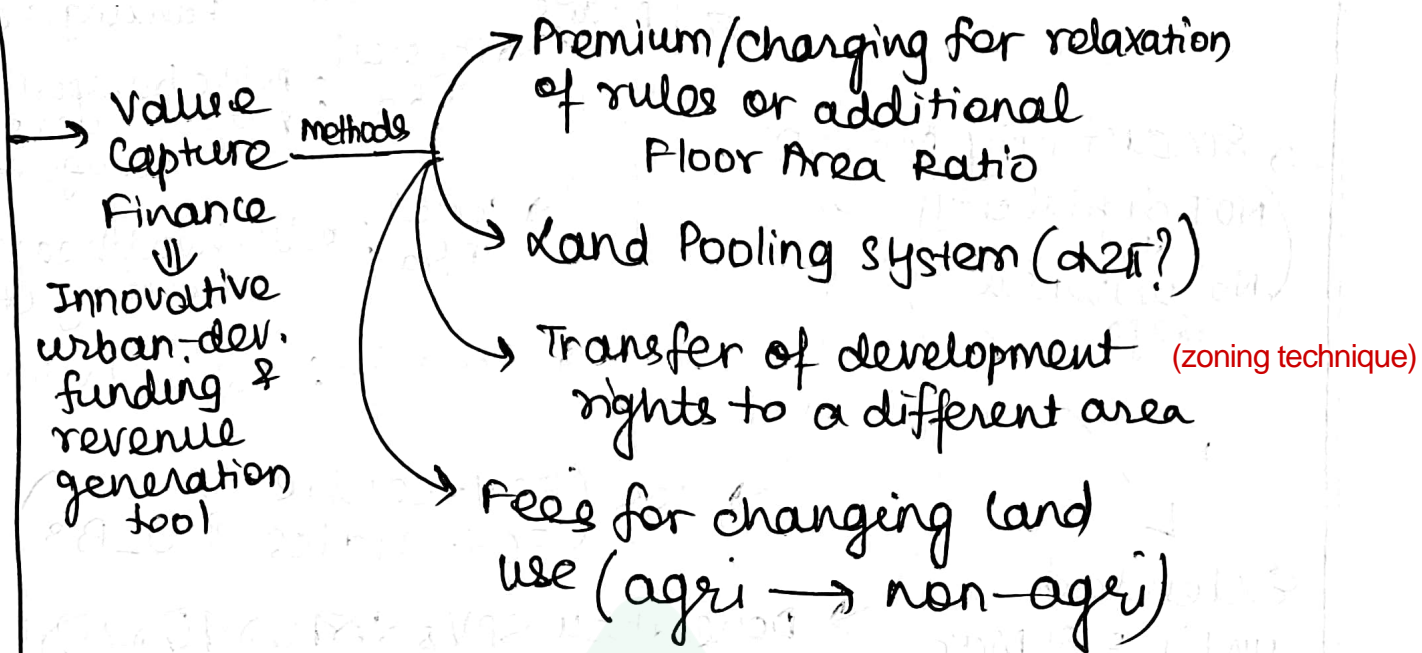 Value
Capture
Finance
⇓
Innovative
urban-dev.
funding &
revenue
generation
tool
methods
Premium/charging for relaxation
of rules or additional
Floor Area Ratio
Land Pooling System (
Transfer of development (zoning technique)
rights to a different area
Fees for changing land
use (agri → non-agri)